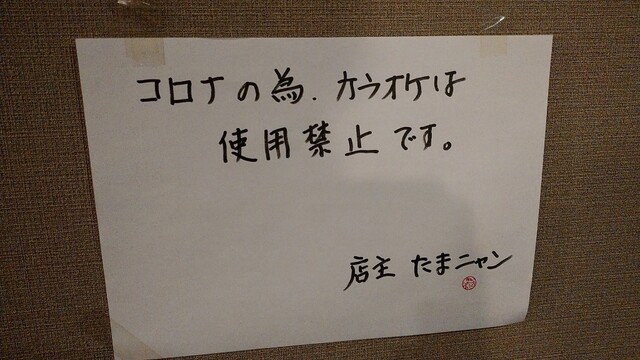 コロナの為、カラオケは
使用禁止です。
店主 たまニャン